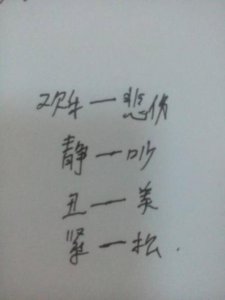 欢乐—悲伤
静—吵
丑—美
紧—松.